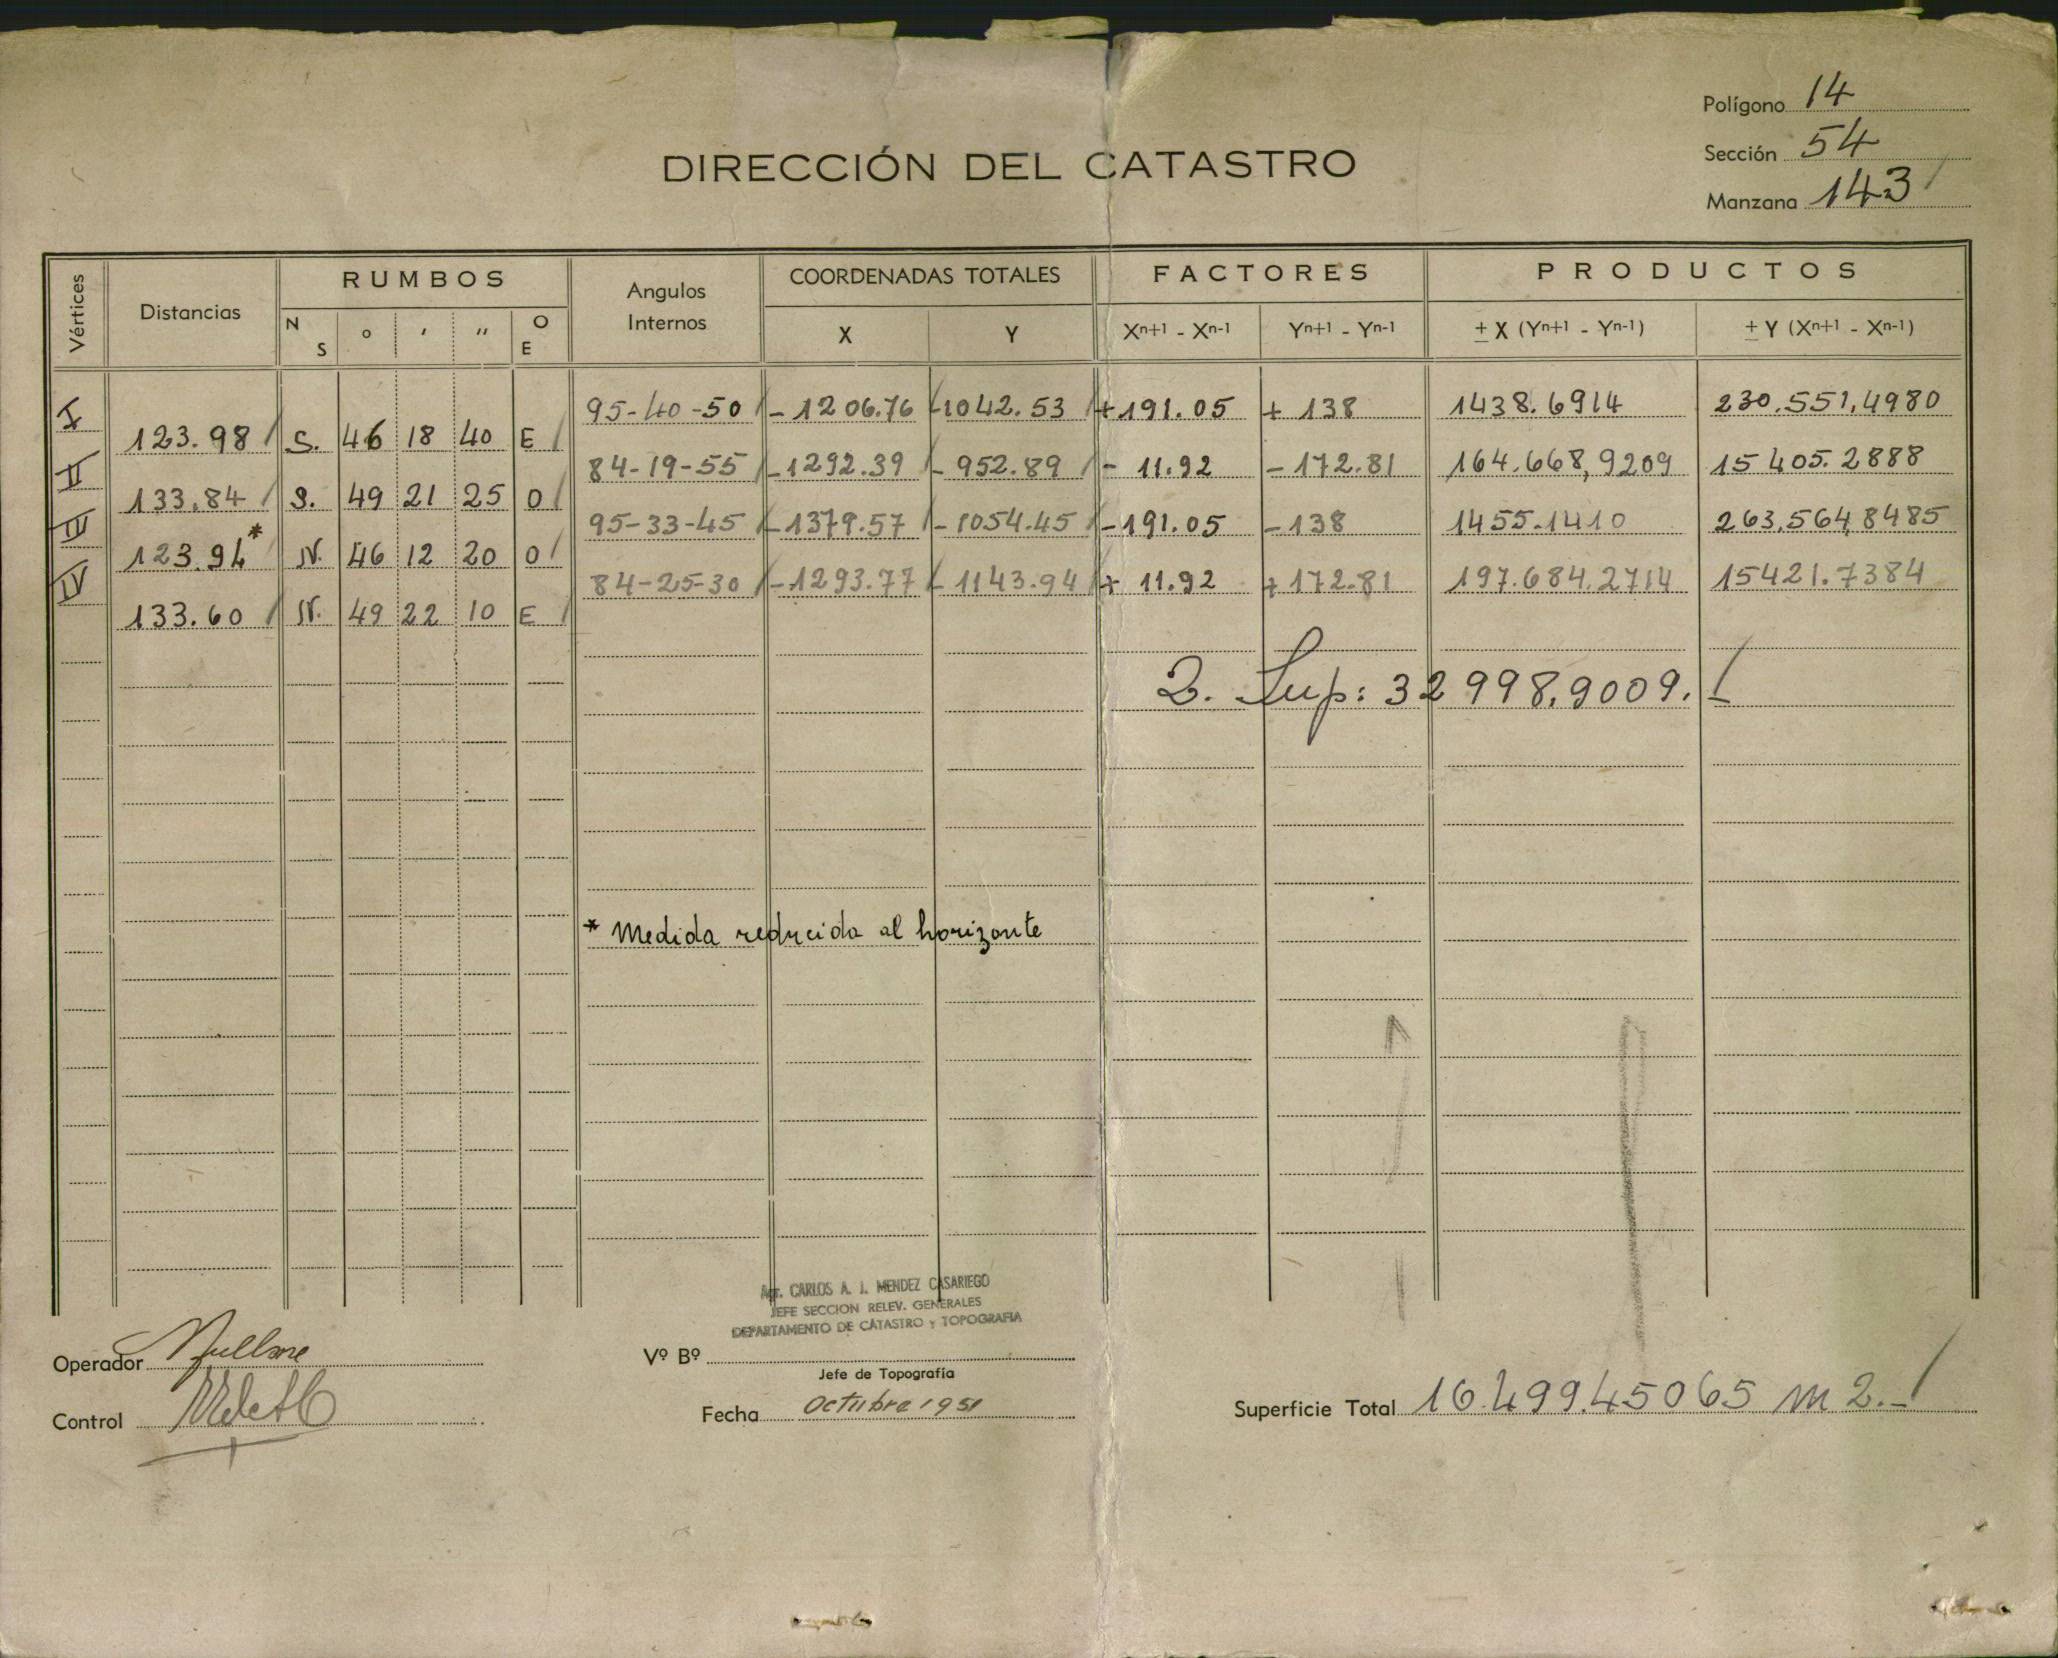 Polígono 14
Sección 54
Manzana 143
DIRECCIÓN DEL CATASTRO
Vértices Distancias RUMBOS Angulos Internos COORDENADAS TOTALES FACTORES PRODUCTOS
N S ° ' " O E X Y Xn+1 - Xn-1 Yn+1 - Yn-1 ± X (Yn+1 - Yn-1) ± Y (Xn+1 - Xn-1)
I 95-40-50 - 1206.76 -1042.53 +191.05 + 138 1438.6914 230.551,4980
123.98 S. 46 18 40 E
II 84-19-55 -1292.39 - 952.89 - 11.92 - 172.81 164.668,9209 15 405.2888
133.84 S. 49 21 25 O
III 95-33-45 -1379.57 - 1054.45 -191.05 -138 1455.1410 263.564,8485
123.94* N. 46 12 20 O
IV 84-25-30 -1293.77 - 1143.94 + 11.92 +172.81 197.684.2714 15421.7384
133.60 N. 49 22 10 E
2. Sup: 32998.9009.
* Medida reducida al horizonte
Agr. CARLOS A. J. MENDEZ CASARIEGO
JEFE SECCION RELEV. GENERALES
DEPARTAMENTO DE CATASTRO y TOPOGRAFIA
Operador
Vº Bº
Jefe de Topografía
Control
Fecha Octubre 1951
Superficie Total 16.499.45065 m2.-